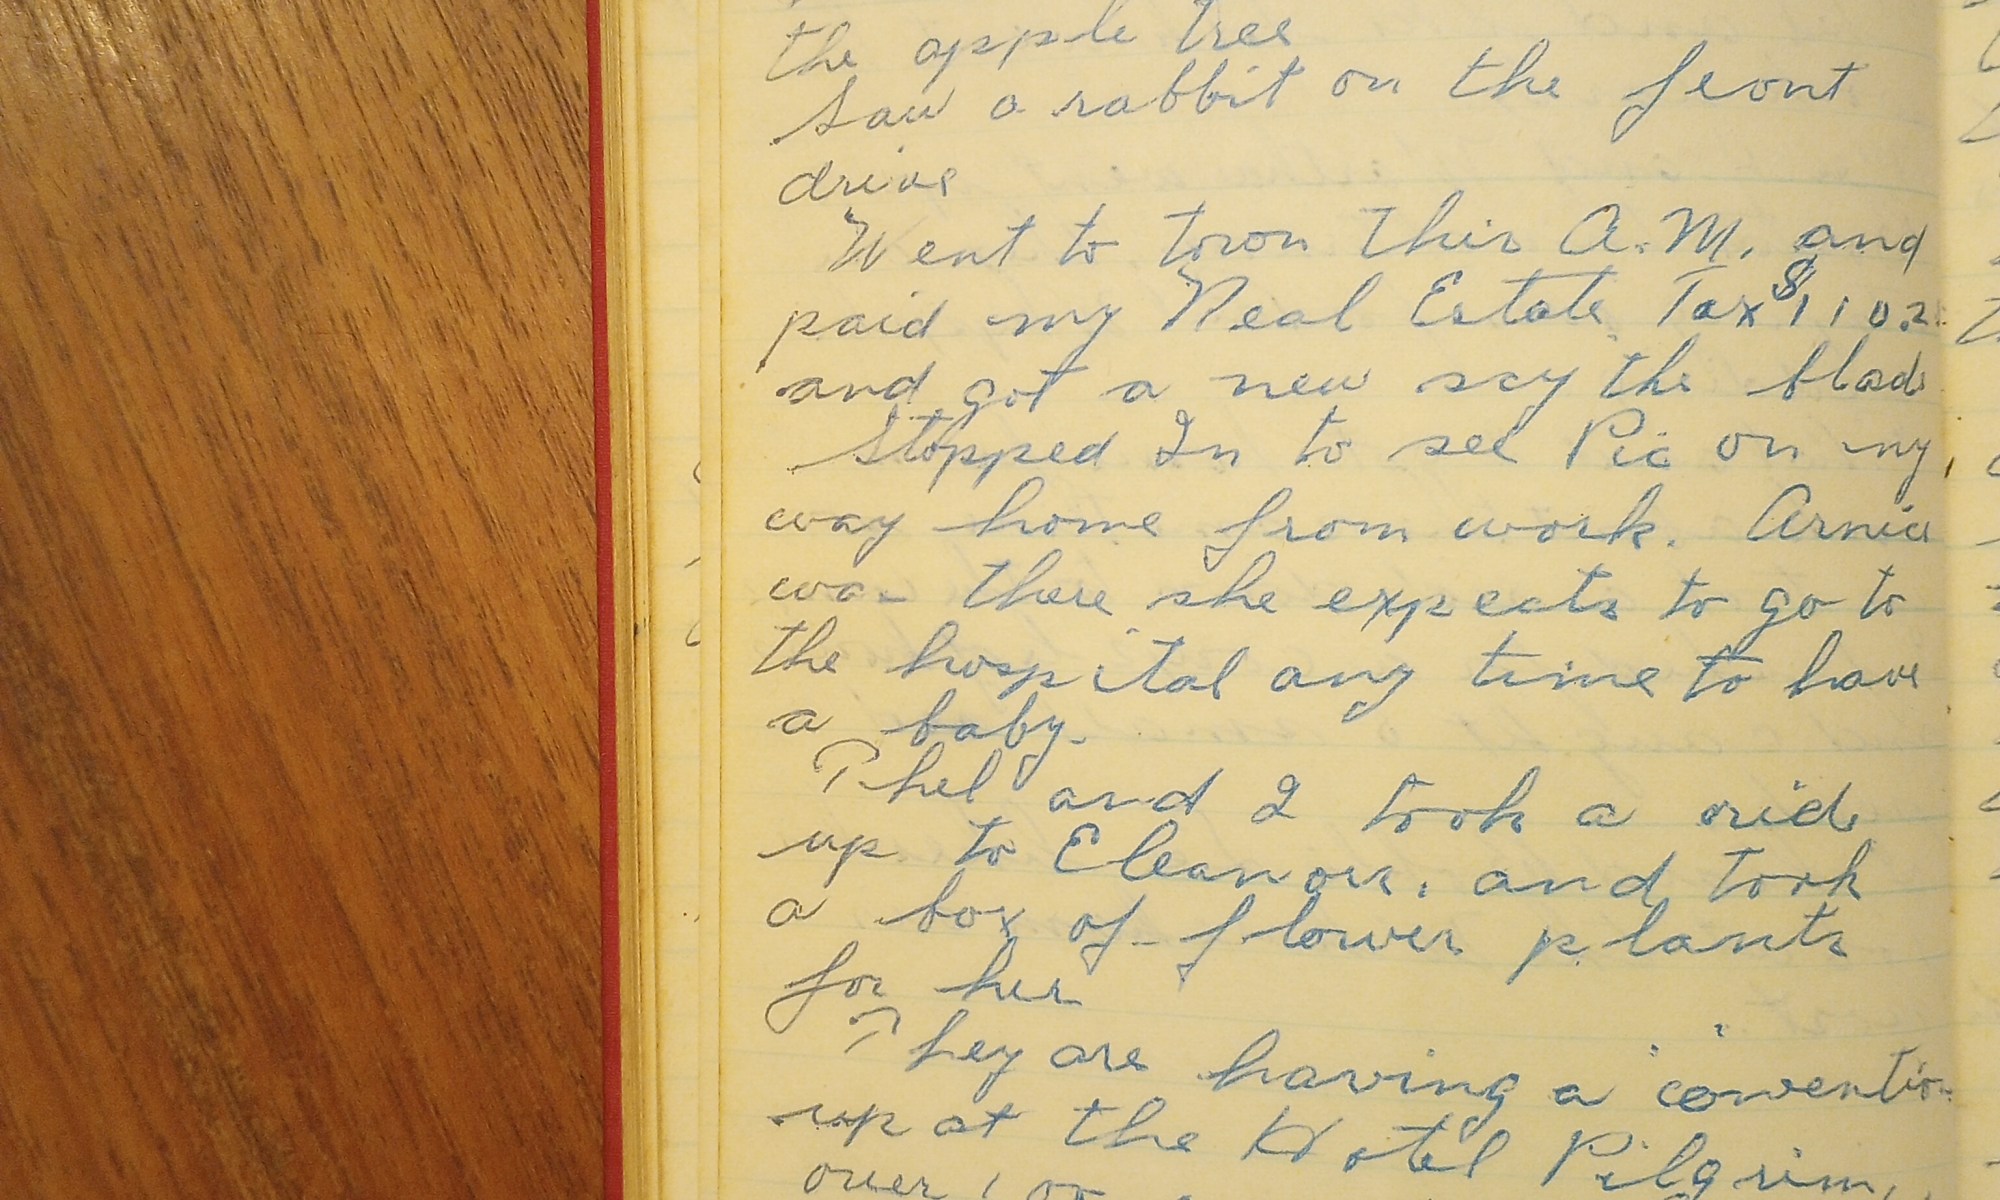 the apple tree
Saw a rabbit on the front
drive
Went to town this A.M. and
paid my Real Estate Tax $1102
and got a new scy the blade
Stopped In to see Pic on my
way home from work. Arnie
was there she expects to go to
the hospital any time to have
a baby.
Phel and I took a ride
up to Eleanors, and took
a box of flower plants
for her
They are having a convention
up at the Hotel Pilgrim,
over